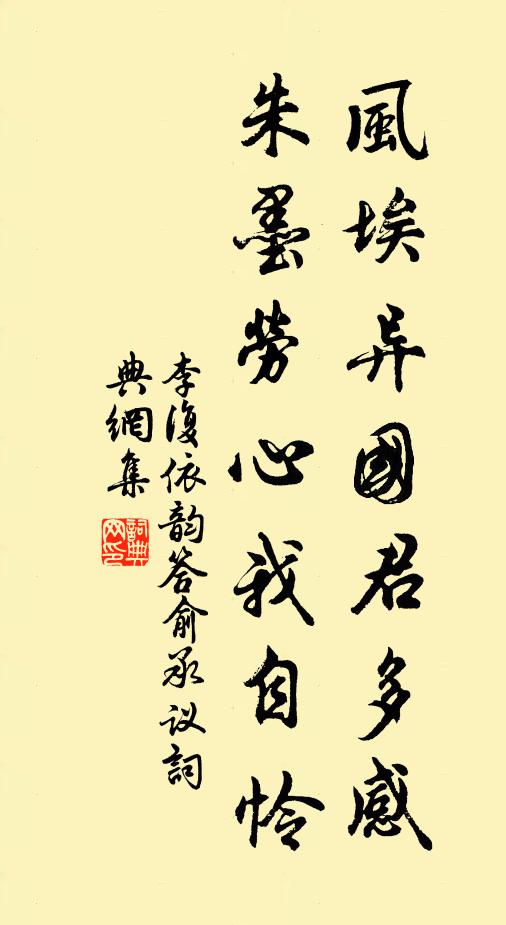 風埃异國君多感
朱墨勞心我自怜
李復依韵答俞承议詞
典網集
詞典网印